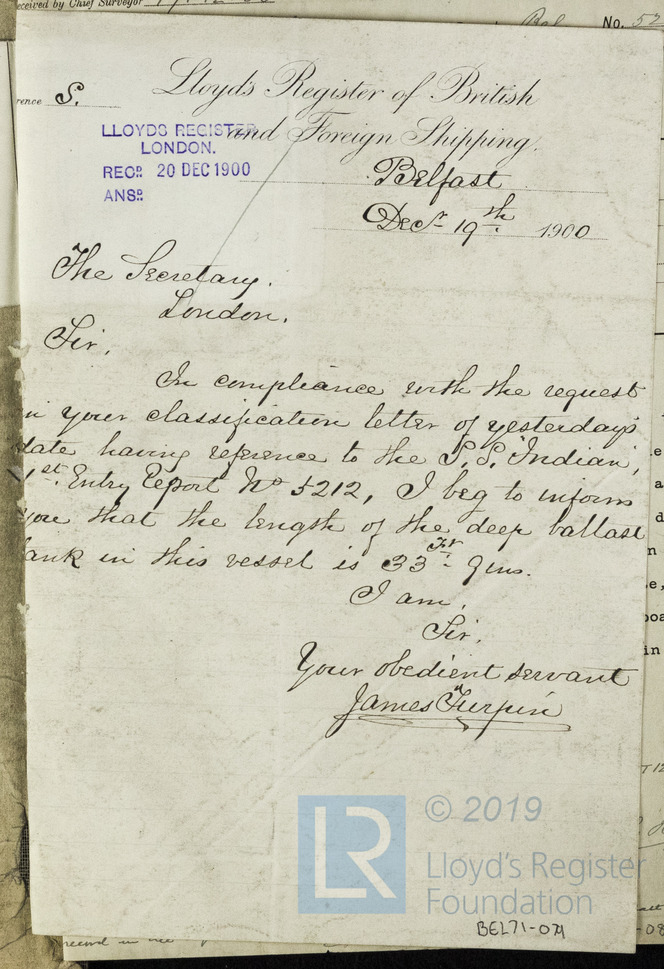 eceived by Chief Surveyor
No. 52
rence S.
Lloyd's Register of British
and Foreign Shipping.
LLOYDS REGISTER
LONDON.
RECD. 20 DEC 1900
ANSD.
Belfast
Decr 19th 1900
The Secretary.
London.
Sir,
In compliance with the request
in your classification letter of yesterday's
date having reference to the S.S. "Indian",
1st Entry Report No 5212, I beg to inform
you that the length of the deep ballast
tank in this vessel is 33 Ft 9 ins.
I am,
Sir,
Your obedient servant
James Turpin
LR
© 2019
Lloyd's Register
Foundation
BEL71-074